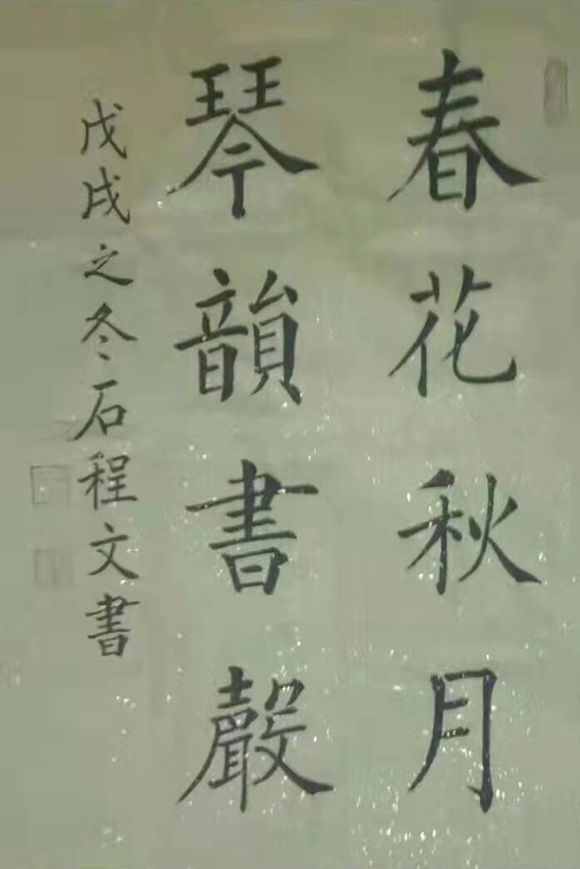 春花秋月
琴韻書聲
戊戌之冬石程文書